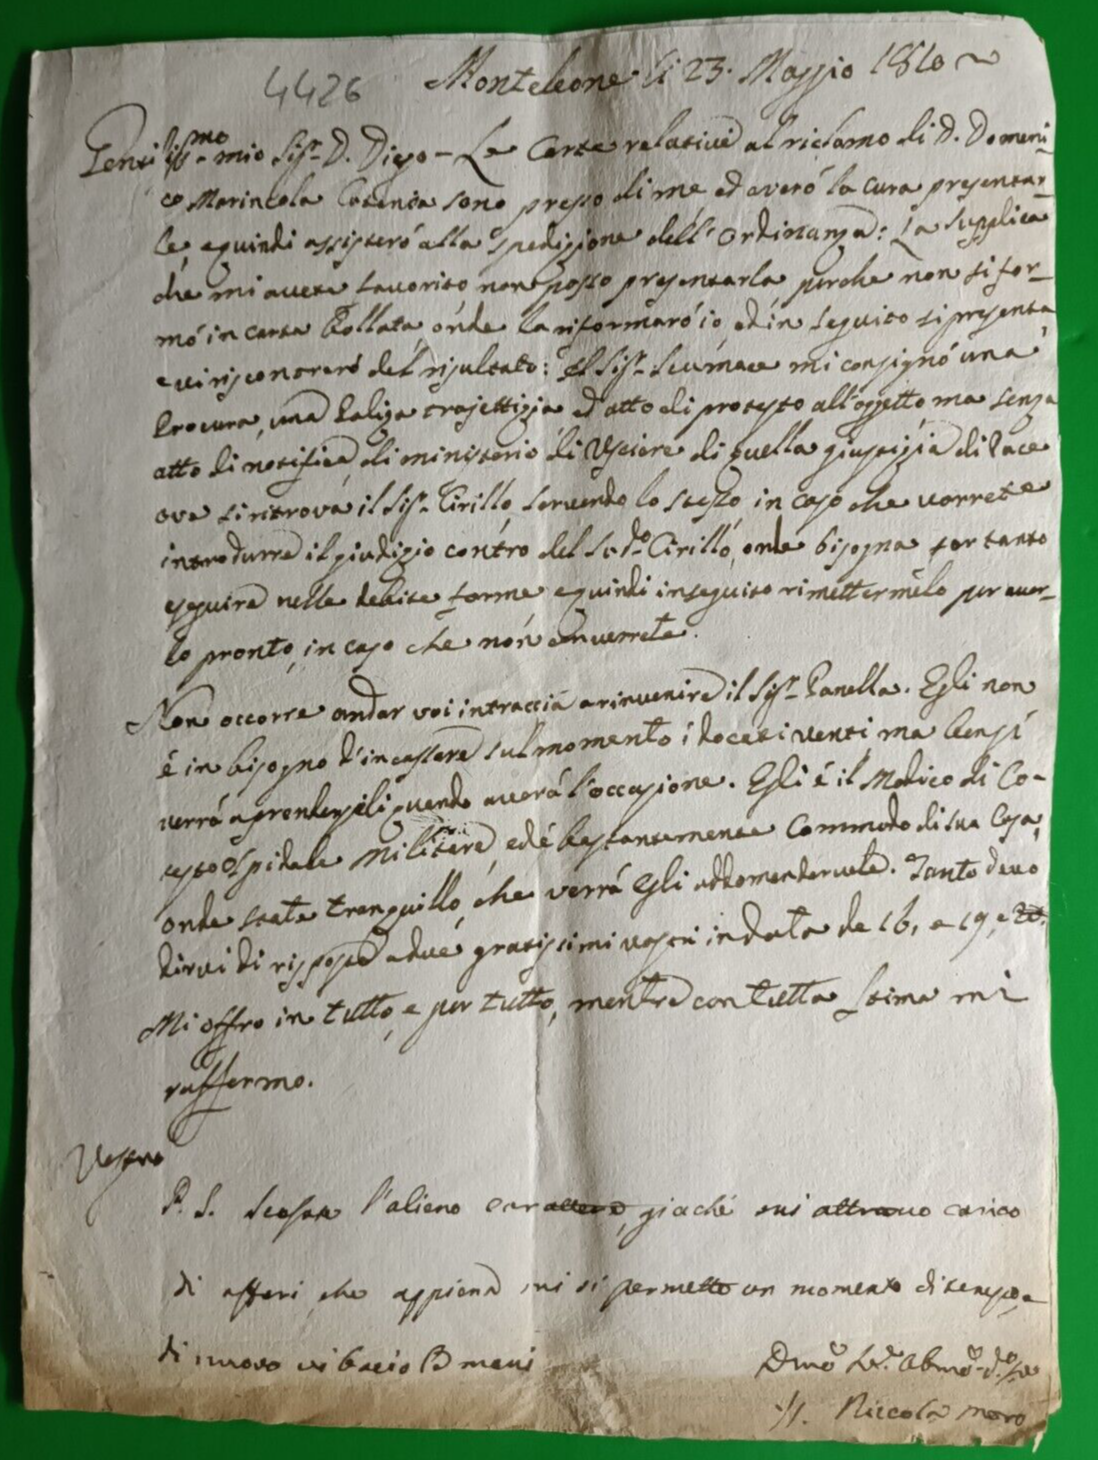 4426
Monteleone li 23. Maggio 1810
Gentilissmo mio Sigr. D. Diego - Le Carte relative al riclamo di D. Domeni-
co Marincola Cosenza sono presso di me, ed averó la cura presentar-
le, e quindi assisteró alla spedizione dell'Ordinanza: La supplica
che mi avete favorito non posso presentarla perche non si for-
mó in carta bollata, onde la riformaró io, ed in seguito si presenta,
e vi riscontreró del risultato: Il Sigr. Scumace mi consignó una
Procura, una Poliza trajettizia ed atto di protesto all'oggetto ma senza
atto di notifica di ministerio di Usciere di quella giustizia di Pace
ove si ritrova il Sigr. Cirillo, servendo lo stesso in caso che vorrete
introdurre il giudizio contro del sudo. Cirillo, onde bisogna far tanto
eseguire nelle debite forme e quindi in seguito rimettermelo per aver-
lo pronto, in caso che non converrete.
Non occorre andar voi in traccia a rinvenire il Sigr. Panella. Egli non
é in bisogno d'incassare sul momento i docati venti ma bensí
verrá a prenderseli quando averá l'occasione. Egli é il Medico di Co-
testo Ospidale Militare, ed é bastantemente Commodo di sua Casa,
onde state tranquillo, che verrá Egli addomandarvele. Tanto devo
dirvi di risposta a due gratissimi vostri in data de 16, e 19, e
Mi offro in tutto, e per tutto, mentre con tutta stima mi
raffermo.
Vostro
P. S. Scusate l'alieno carattere, giaché mi attrovo carico
di affari, che appiena mi si permette un momento di tempo, e
di nuovo vi bacio le mani
Dmo Sr. Obmo
Niccola Moro